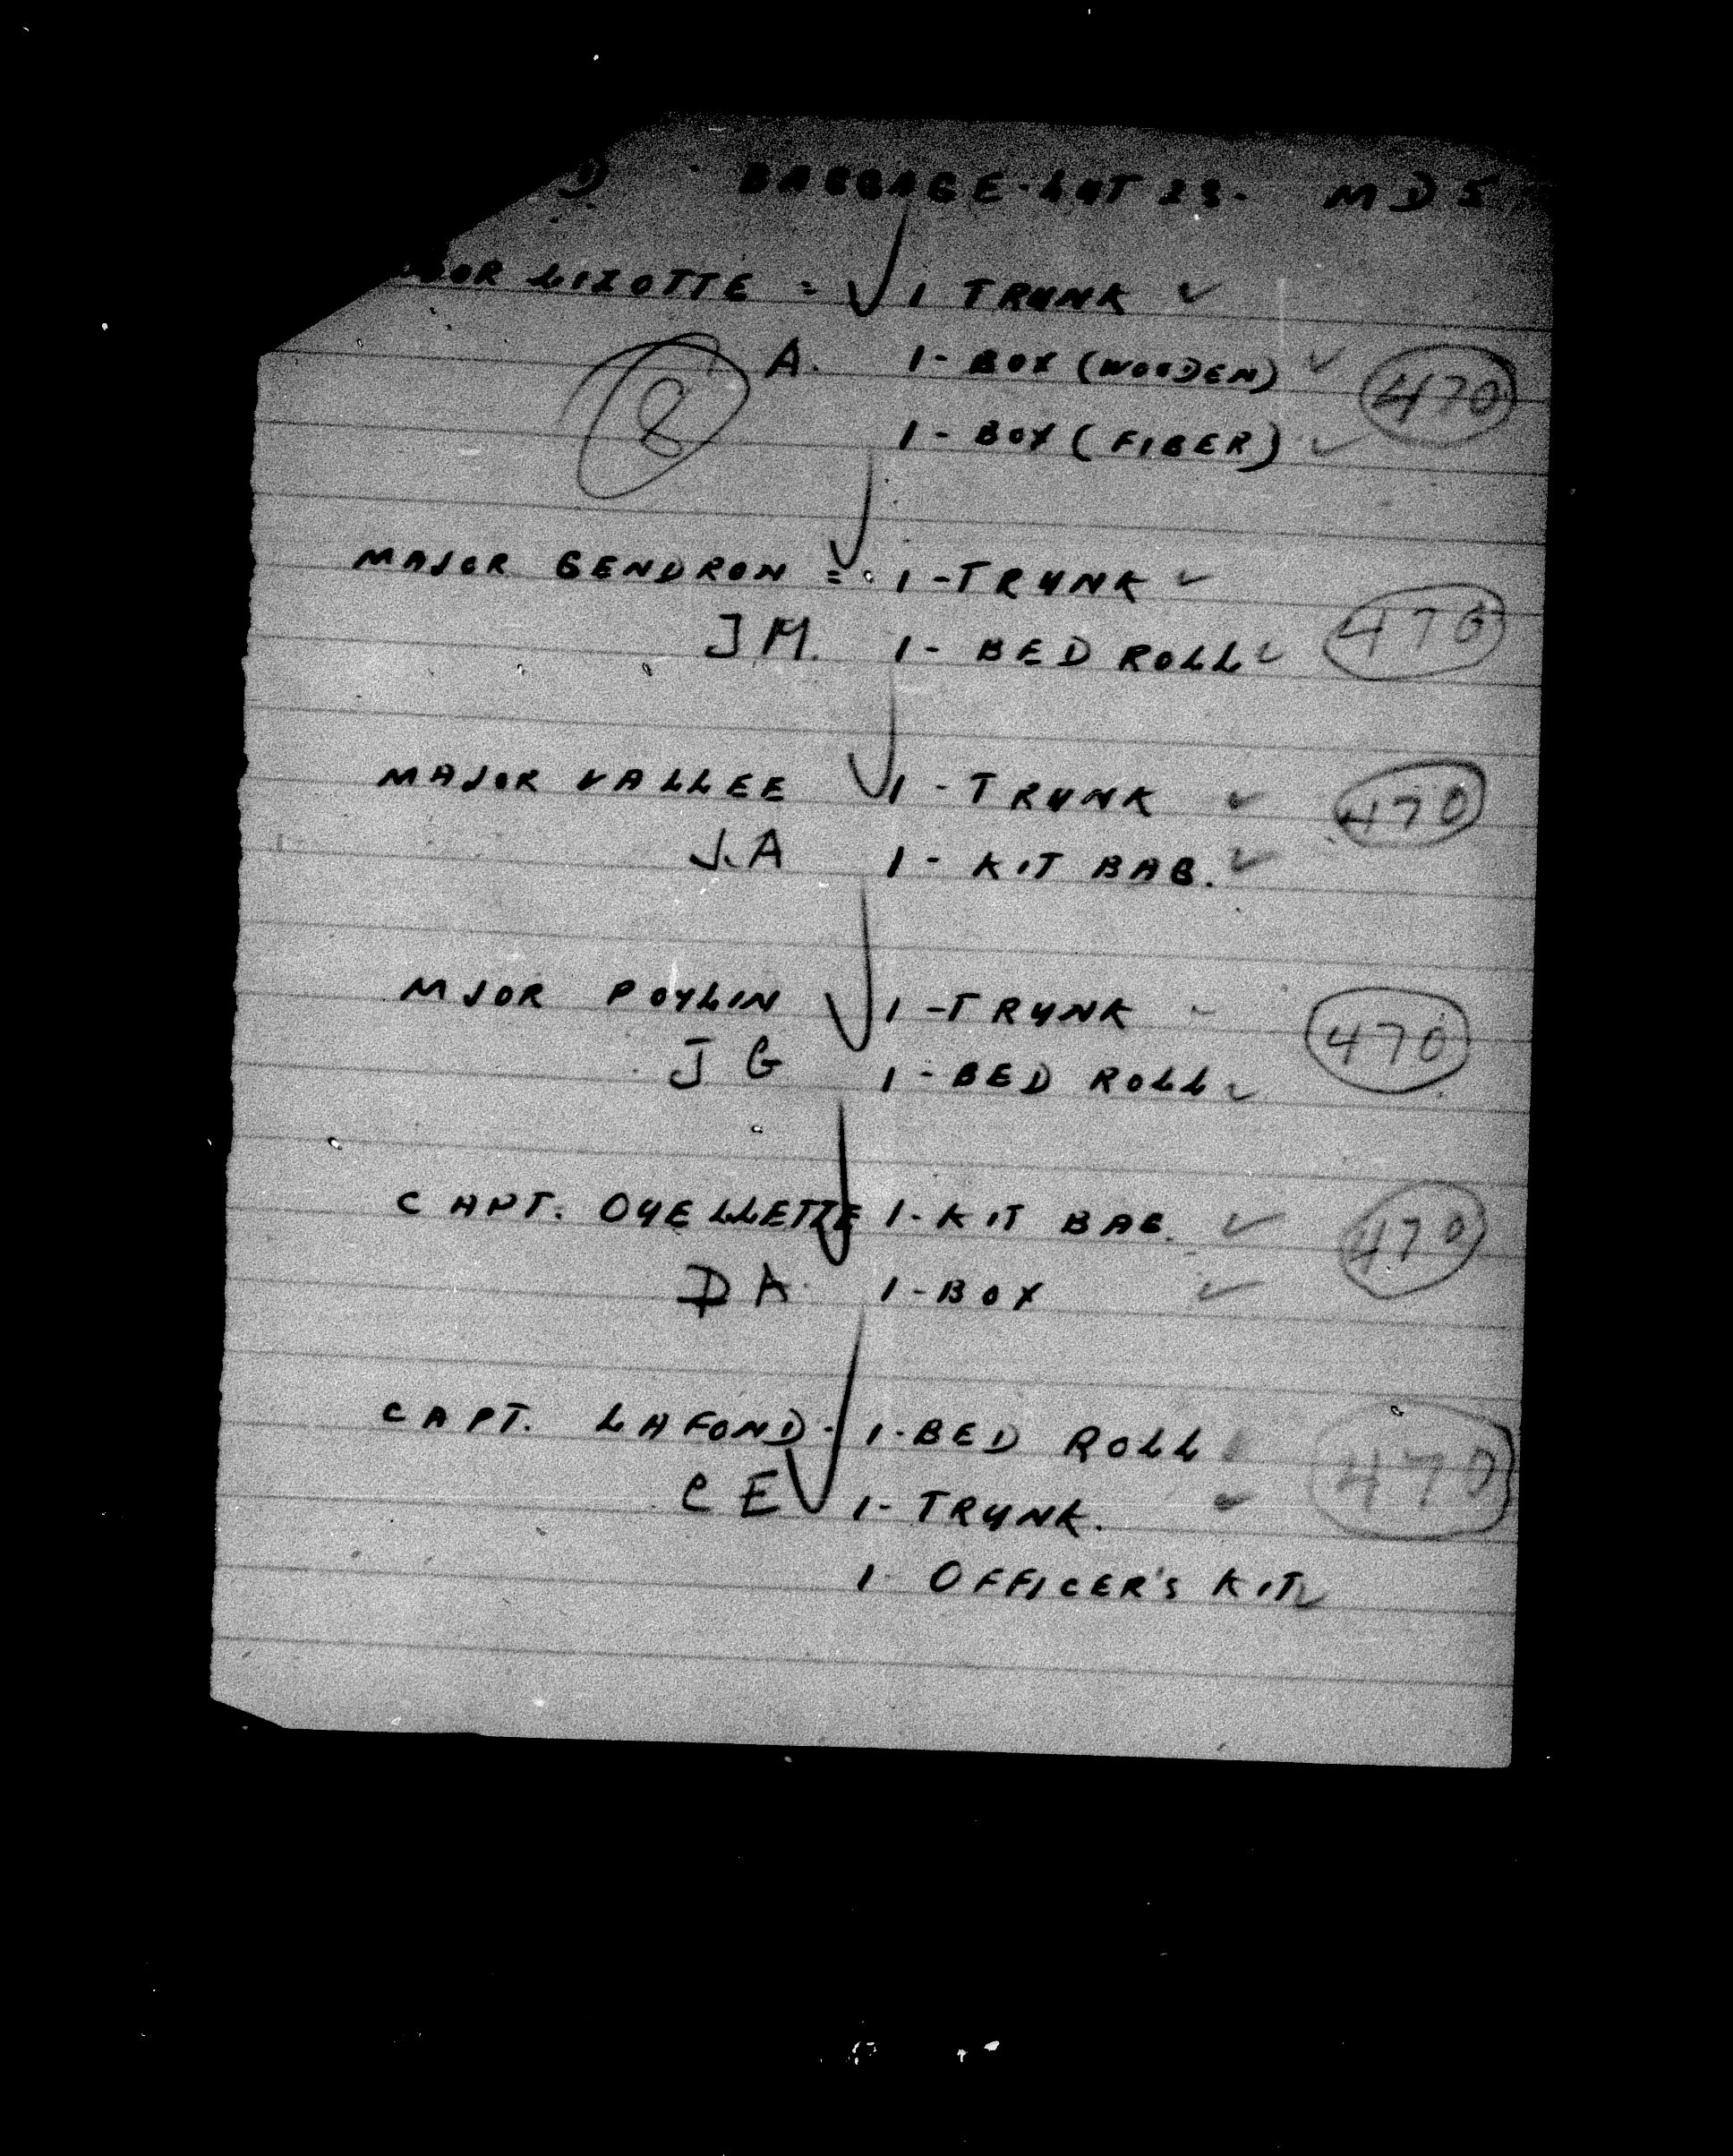 D BAGGAGE. LOT 23. MD 5
JOR LIZOTTE = 1 TRUNK ✓
8 A. 1 - BOX (WOODEN) ✓ 470
1 - BOX (FIBER) ✓
MAJOR GENDRON = 1 - TRUNK ✓
JM. 1 - BED ROLL ✓ 470
MAJOR VALLEE 1 - TRUNK ✓ 470
J.A 1 - KIT BAG. ✓
MJOR POULIN 1 - TRUNK 470
J G 1 - BED ROLL ✓
CAPT. OUELLETTE 1 - KIT BAG. ✓ 470
D A 1 - BOX ✓
CAPT. LAFOND - 1 - BED ROLL 470
C E 1 - TRUNK. ✓
1 - OFFICER'S KIT ✓